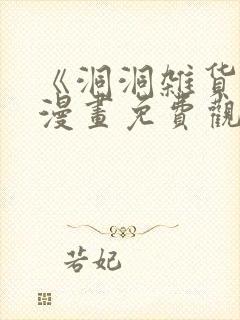 《洞洞雑货
漫畫免費觀
若妃